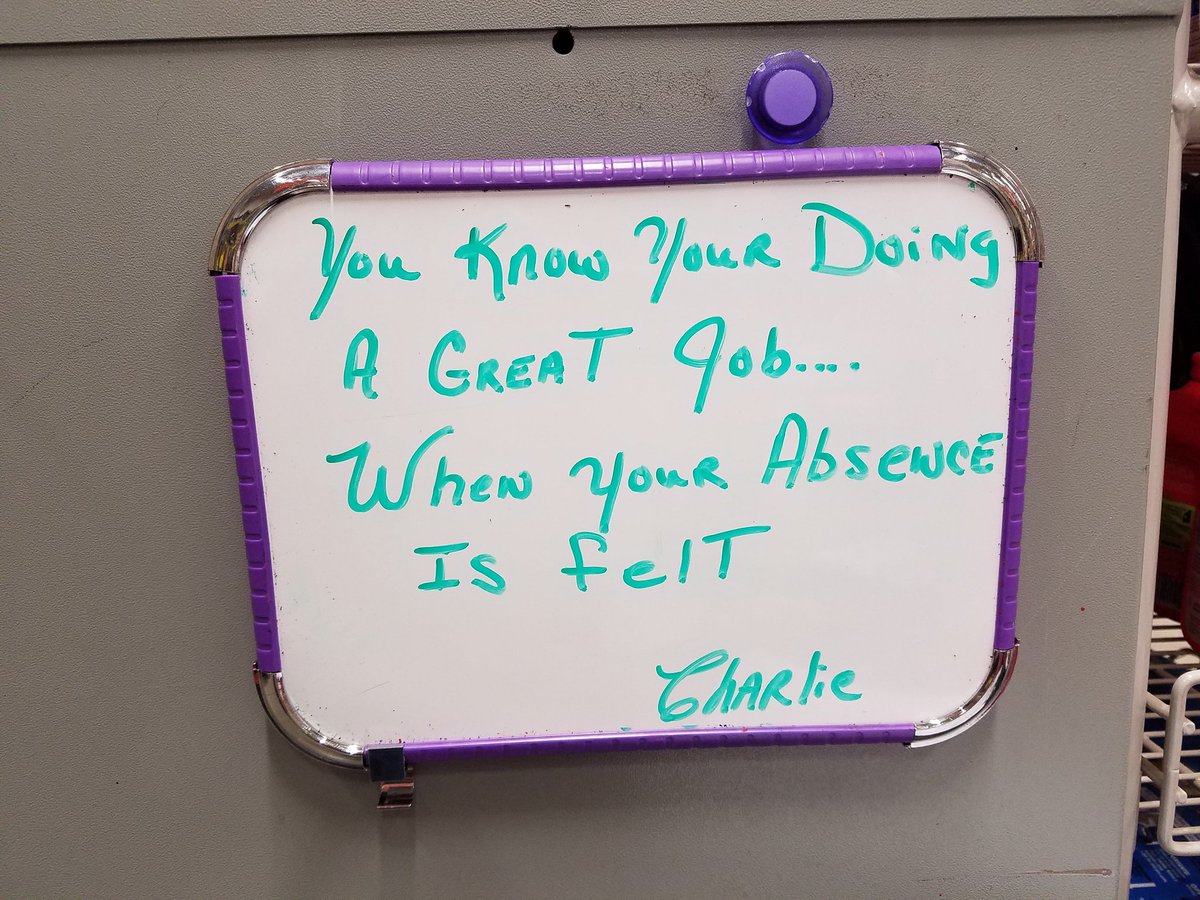 You Know Your Doing
A GREAT Job....
When your Absence
Is felT
Charlie